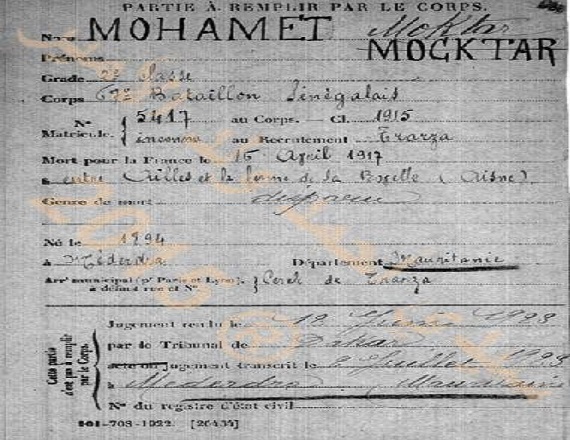 PARTIE À REMPLIR PAR LE CORPS.
Nom MOHAMET Moktar
MOCKTAR
Prénoms
Grade 2e Classe
Corps 67e Bataillon Sénégalais
No 5417 au Corps. — Cl. 1915
Matricule. inconnu au Recrutement Trarza
Mort pour la France le 16 April 1917
à entre Ailles et la ferme de la Bovelle (Aisne)
Genre de mort disparu
Né le 1894
à Méderdra Département Mauritanie
Arrt municipal (pr Paris et Lyon), à défaut rue et No Cercle de Trarza
Cette partie n'est pas à remplir par le Corps.
Jugement rendu le Juin
par le Tribunal de Dakar
acte ou jugement transcrit le Juillet
à Mederdra Mauritanie
No du registre d'état civil
-708-1922. [26434]